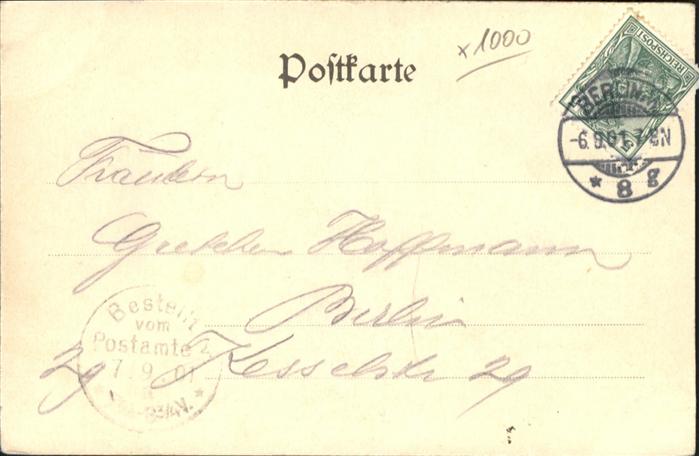 x1000
Postkarte
REICHSPOST
BERLIN
-6.9.01. 7-8N
* 8 g
Fräulein
Gretchen Hoffmann
Berlin
Kesselstr 29
Bestellt
vom
Postamte
7. 9. 01